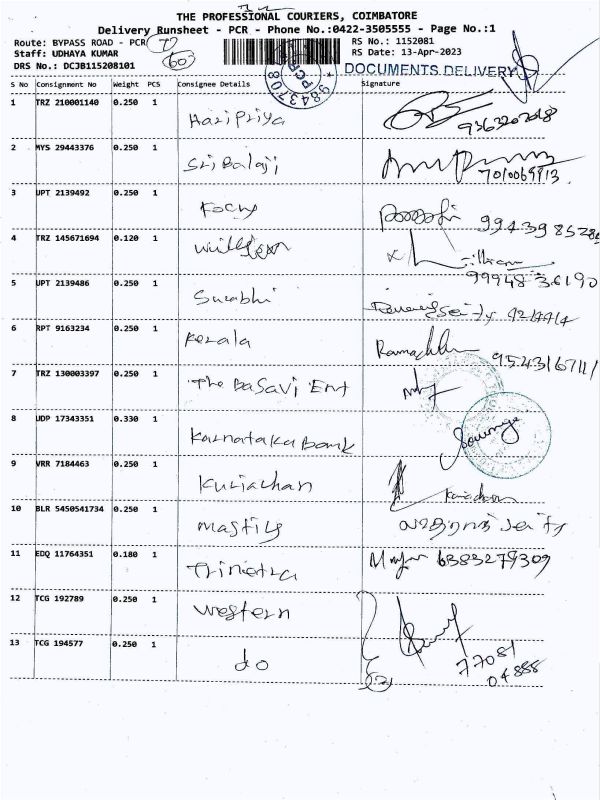 THE PROFESSIONAL COURIERS, COIMBATORE
Delivery Runsheet - PCR - Phone No.:0422-3505555 - Page No.:1
Route: BYPASS ROAD - PCR
RS No.: 1152081
Staff: UDHAYA KUMAR
RS Date: 13-Apr-2023
DRS No.: DCJB115208101
60
DOCUMENTS DELIVERY
PCR
9843708
S No Consignment No Weight PCS Consignee Details Signature
1 TRZ 210001140 0.250 1 Haripriya 9363207018
2 MYS 29443376 0.250 1 Sri Balaji
3 UPT 2139492 0.250 1
4 TRZ 145671694 0.120 1 William
99948 36190
5 UPT 2139486 0.250 1 Surabhi
6 RPT 9163234 0.250 1 Kerala
7 TRZ 130003397 0.250 1 The Basavi Ent
8 UDP 17343351 0.330 1 Karnataka Bank
9 VRR 7184463 0.250 1 Kuriachan
10 BLR 5450541734 0.250 1
11 EDQ 11764351 0.180 1 Trinetra 6383279309
12 TCG 192789 0.250 1 Western
13 TCG 194577 0.250 1 do 77081
04888